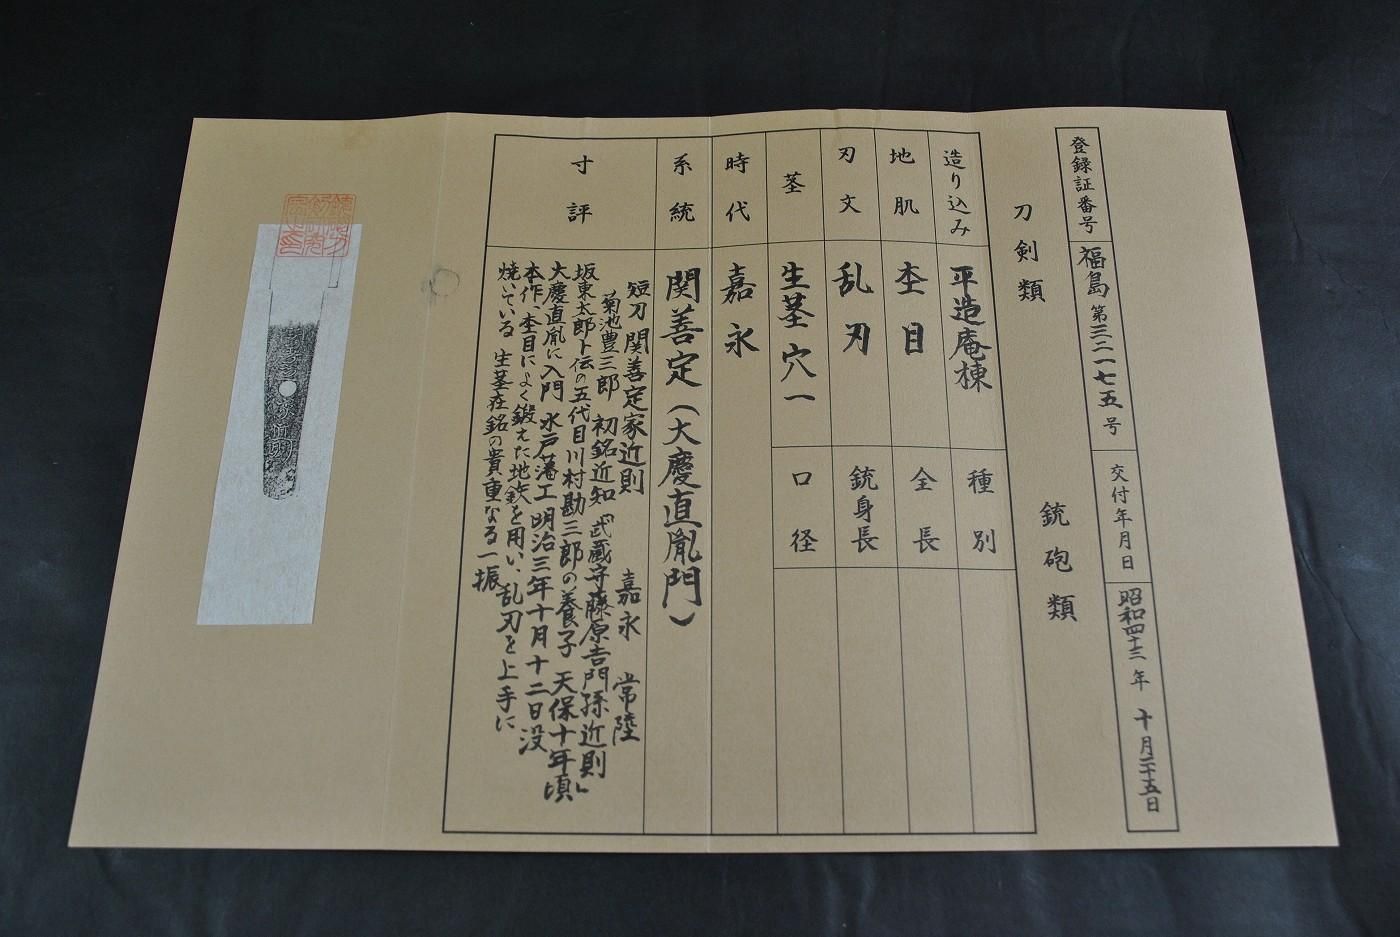 登録証番号 福島 第三二一七五号 交付年月日 昭和四十三年 十月二十五日
刀剣類 銃砲類
造り込み 平造庵棟 種別
地肌 杢目 全長
刃文 乱刃 銃身長
茎 生茎 穴一 口径
時代 嘉永
系統 関善定(大慶直胤門)
寸評
短刀 関善定家近則 嘉永 常陸
菊池豊三郎 初銘近知「武蔵守藤原吉門孫近則」
坂東太郎卜伝の五代目川村勘三郎の養子 天保十年頃
大慶直胤に入門 水戸藩工 明治三年十月十二日没
本作、杢目によく鍛えた地鉄を用い、乱刃を上手に
焼いている 生茎在銘の貴重なる一振